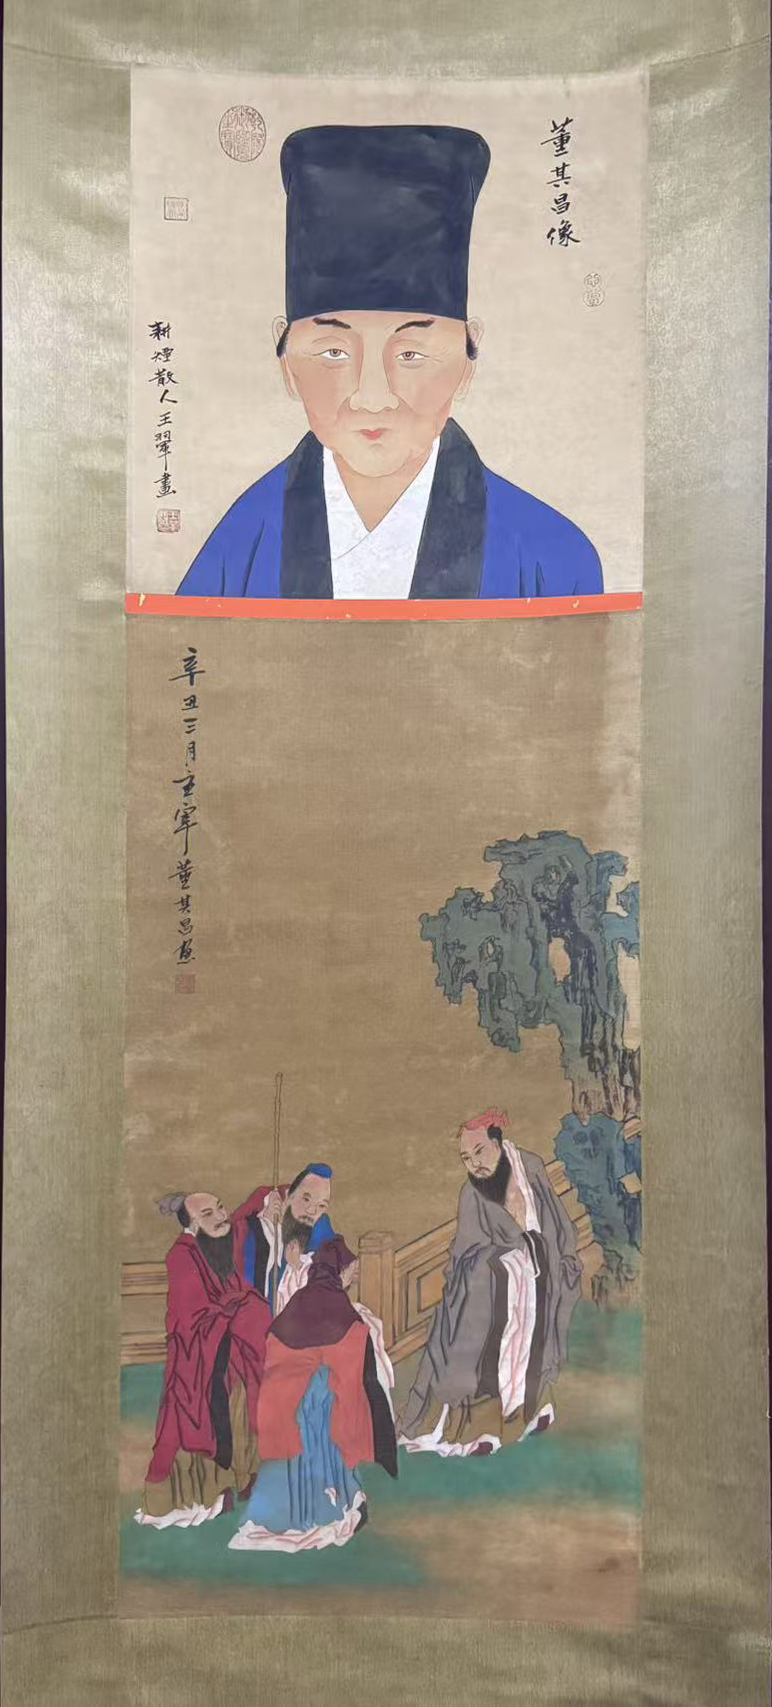 董其昌像
耕煙散人王翬畫
辛丑三月主宰董其昌畫